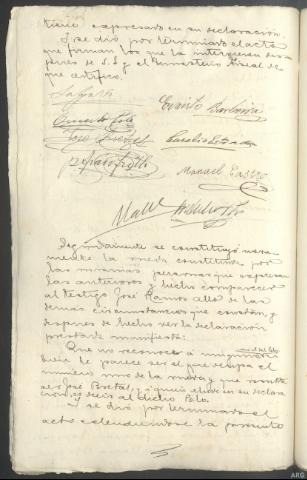 tiene expresado en su declaración.
Y se dió por terminado el acta
que firman los que la intervienen des-
pues de S.S y el Ministerio Fiscal de
que certifico.
Evaristo
José
Manuel Castro
Seguidamente se constituyó nueva-
mente la rueda constituida por
las mismas personas que expresan
las anteriores y hecho comparecer
al testigo José Ramos Allo de las
demas circunstancias que constan y
despues de hecho ver la declaración
prestada manifiesta:
Que no reconoce a ninguno
si le parece ser el que ocupa el
numero uno de la rueda y que resulta
ser José Bretal, a quien alude en su declara-
es decir al dicho Polo.
Y se dió por terminado el
acto extendiendose la presente
ARG